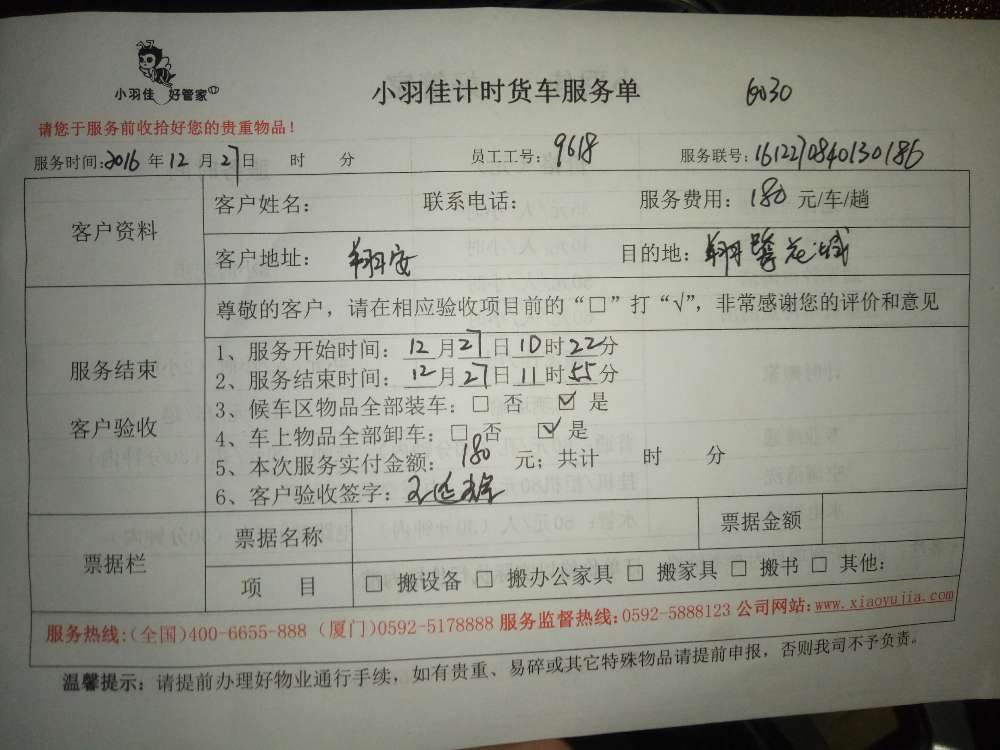 小羽佳 好管家
小羽佳计时货车服务单 6030
请您于服务前收拾好您的贵重物品！
服务时间：2016 年 12 月 27 日 时 分 员工工号：9618 服务联号：1612270840130186
客户资料
客户姓名： 联系电话： 服务费用：180 元/车/趟
客户地址：翔安 目的地：翔鹭花城
服务结束
客户验收
尊敬的客户，请在相应验收项目前的“□”打“√”，非常感谢您的评价和意见
1、服务开始时间：12月27日10时22分
2、服务结束时间：12月27日11时55分
3、候车区物品全部装车：□ 否 ☑ 是
4、车上物品全部卸车：□ 否 ☑ 是
5、本次服务实付金额：180 元；共计 时 分
6、客户验收签字：
票据栏
票据名称 票据金额
项 目 □ 搬设备 □ 搬办公家具 □ 搬家具 □ 搬书 □ 其他：
服务热线：（全国）400-6655-888（厦门）0592-5178888 服务监督热线：0592-5888123 公司网站：www.xiaoyujia.com
温馨提示：请提前办理好物业通行手续，如有贵重、易碎或其它特殊物品请提前申报，否则我司不予负责。